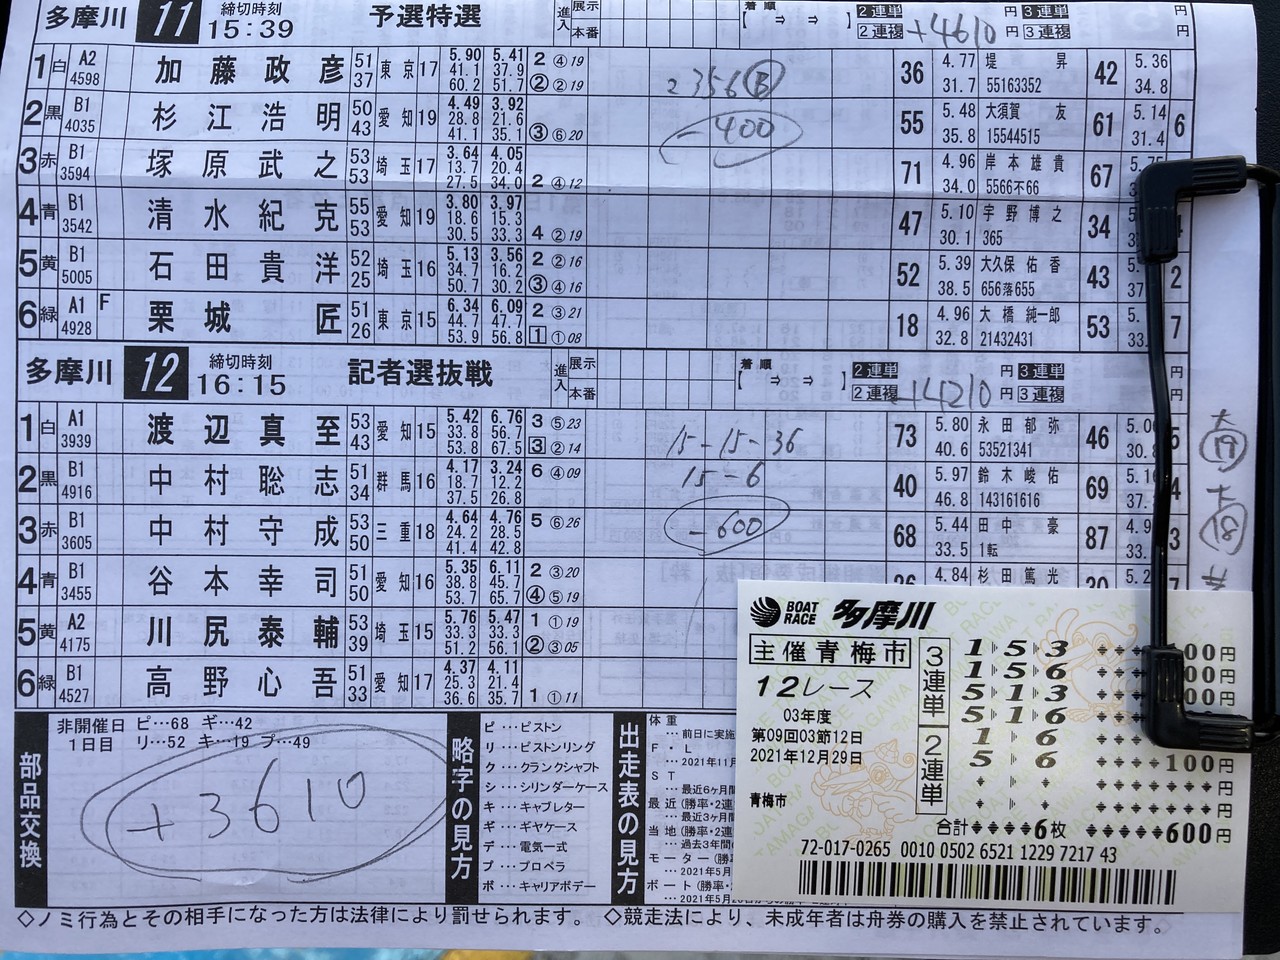 多摩川 11 締切時刻 15:39 予選特選 進入 展示 本番 着順 【 ⇒ ⇒ 】 2連単 2連複 +4610 円 円 3連単 3連複 円 円
1 白 A2 4598 加藤政彦 51 37 東京 17 5.90 41.1 60.2 5.41 37.9 51.7 2 ④19 ② ②19 2356B 36 4.77 31.7 堤 昇 55163352 42 5.36 34.8
2 黒 B1 4035 杉江浩明 50 43 愛知 19 4.49 28.8 41.1 3.92 21.6 35.1 ③ ⑥20 -400 55 5.48 35.8 大須賀 友 15544515 61 5.14 31.4 6
3 赤 B1 3594 塚原武之 53 53 埼玉 17 3.64 13.7 27.5 4.05 20.4 34.0 2 ④12 71 4.96 34.0 岸本雄貴 5566不66 67
4 青 B1 3542 清水紀克 55 53 愛知 19 3.80 18.6 30.5 3.97 15.3 33.3 4 ②19 47 5.10 30.1 宇野博之 365 34
5 黄 B1 5005 石田貴洋 52 25 埼玉 16 5.13 34.7 50.7 3.56 16.2 30.2 2 ②16 ③ ④16 52 5.39 38.5 大久保佑香 656落655 43 2
6 緑 A1 4928 F 栗城 匠 51 26 東京 15 6.34 44.7 53.9 6.09 47.7 56.8 2 ③21 1 ①08 18 4.96 32.8 大橋純一郎 21432431 53 7
多摩川 12 締切時刻 16:15 記者選抜戦 進入 展示 本番 着順 【 ⇒ ⇒ 】 2連単 2連複 +4210 円 円 3連単 3連複 円 円
1 白 A1 3939 渡辺真至 53 43 愛知 15 5.42 33.8 53.8 6.76 56.7 67.5 3 ⑤23 3 ②14 15-15-36 73 5.80 40.6 永田郁弥 53521341 46
2 黒 B1 4916 中村聡志 51 34 群馬 16 4.17 18.7 37.5 3.24 12.2 26.8 6 ④09 15-6 40 5.97 46.8 鈴木峻佑 143161616 69
3 赤 B1 3605 中村守成 53 50 三重 18 4.64 24.2 41.4 4.76 28.5 42.8 5 ⑥26 -600 68 5.44 33.5 田中 豪 1転 87
4 青 B1 3455 谷本幸司 51 50 愛知 16 5.35 38.8 53.7 6.11 45.7 65.7 2 ③20 ④ ⑤19 4.84 杉田篤光
5 黄 A2 4175 川尻泰輔 53 39 埼玉 15 5.76 33.3 51.2 5.47 33.3 56.1 1 ①19 ② ③05
6 緑 B1 4527 高野心吾 51 33 愛知 17 4.37 25.3 36.6 4.11 21.4 35.7 1 ①11
⑲
⑱
部品交換
非開催日 ピ…68 ギ…42
1日目 リ…52 キ…19 プ…49
+3610
略字の見方
ピ…ピストン
リ…ピストンリング
ク…クランクシャフト
シ…シリンダーケース
キ…キャブレター
ギ…ギヤケース
デ…電気一式
プ…プロペラ
ボ…キャリアボデー
出走表の見方
体重
…前日に実施
F・L
…2021年11月
ST
…最近6ヶ月間
最近(勝率・2連
…最近3ヶ月間
当地(勝率・2連
…過去3年間の
モーター(勝率・
…2021年5月
ボート(勝率・
BOAT RACE 多摩川
主催青梅市
12レース
03年度
第09回03節12日
2021年12月29日
青梅市
3連単
1 5 3 00円
1 5 6 00円
5 1 3 00円
5 1 6
2連単
1 6
5 6 100円
円
合計 6枚 600円
72-017-0265 0010 0502 6521 1229 7217 43
◇ノミ行為とその相手になった方は法律により罰せられます。 ◇競走法により、未成年者は舟券の購入を禁止されています。